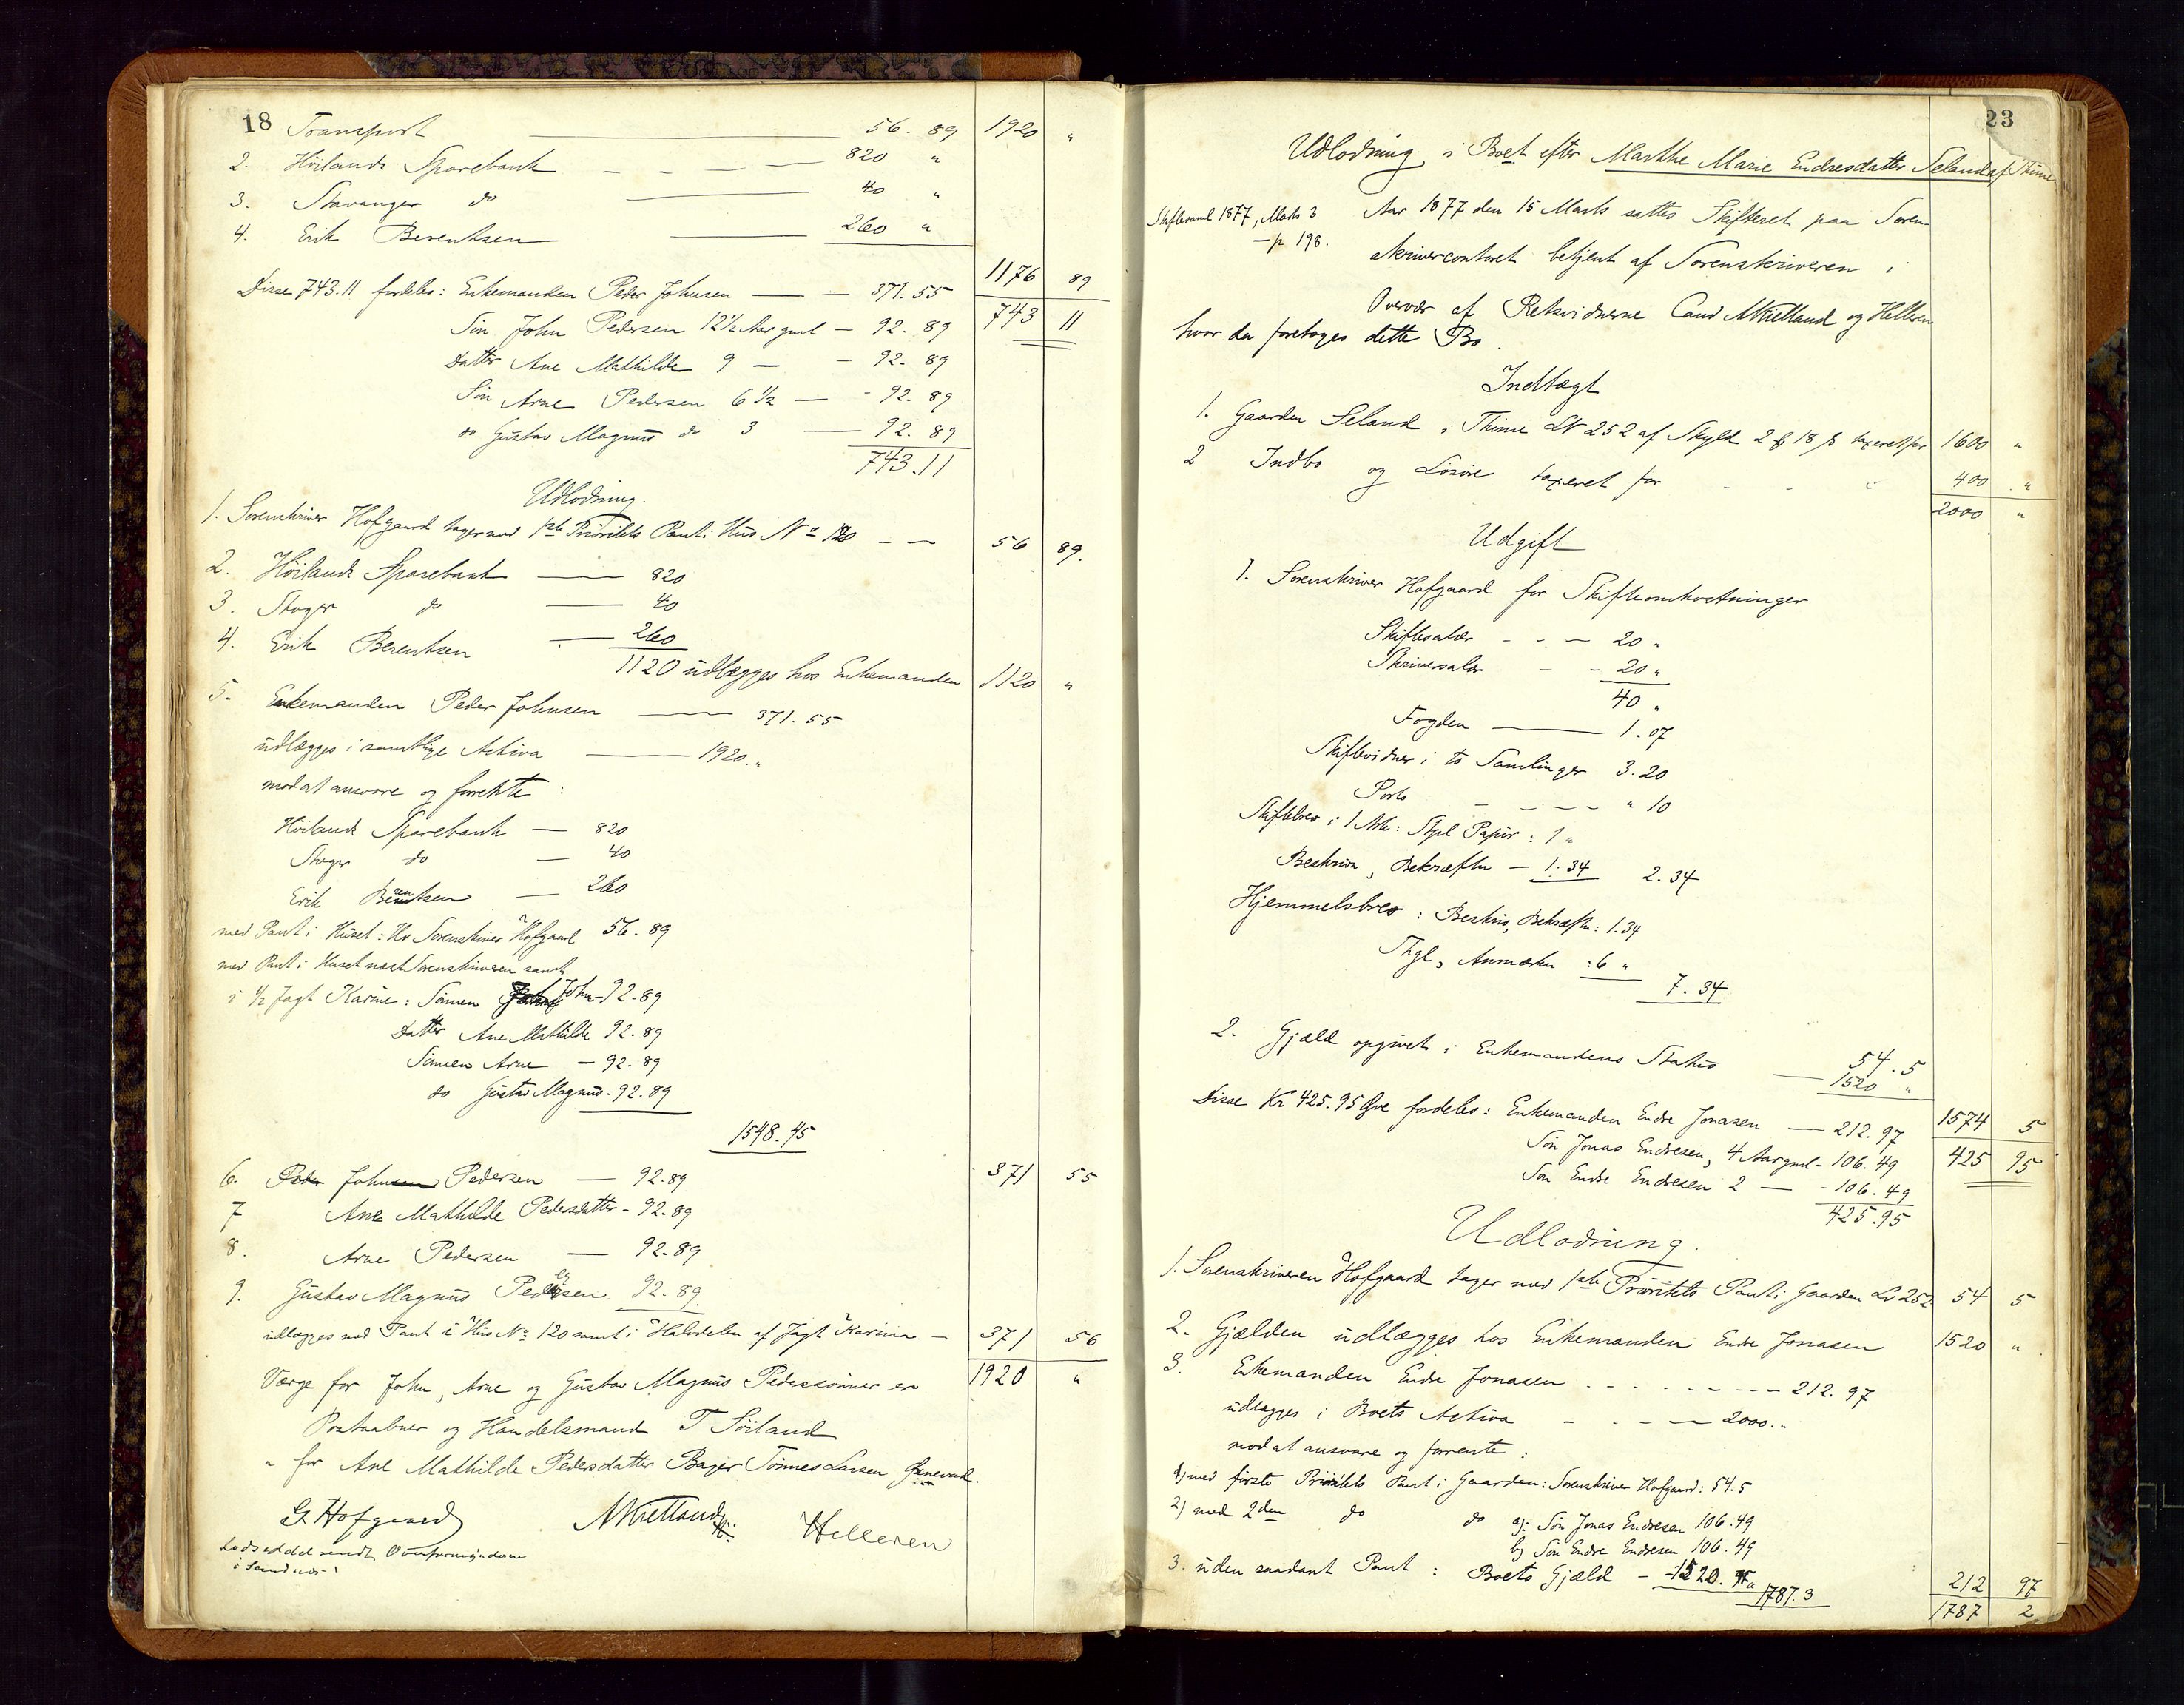 18 Transport — 56. 89 1920 "
2. Höilands Sparebank — 820 "
3. Stavanger do — 40 "
4. Erik Berentsen — 260 "
1176 89
Disse 743.11 fordeles: Enkemanden Peder Johnsen — 371.55
743 11
Sön John Pedersen 12½ Aar gml — 92. 89
Datter Ane Mathilde 9 — - 92. 89
Sön Arne Pedersen 6½ — - 92. 89
do Gustav Magnus do 3 — 92. 89
743.11
Udlodning.
1. Sorenskriver Hofgaard tager med 1ste Prioritets Pant i Hus No 120 — 56 89.
2. Höilands Sparebank — 820
3. Stvger do — 40
4. Erik Berentsen — 260
1120 udlægges hos Enkemanden 1120 "
5. Enkemanden Peder Johnsen — 371.55
udlægges i samtlige Activa — 1920. "
mod at ansvare og forrente :
Höilands Sparebank — 820
Stvger do — 40
Erik Berentsen — 260
med Pant i Huset: Hr Sorenskriver Hofgaard 56. 89
med Pant i Huset næst Sorenskriveren samt
i ½ Jagt Karine: Sönnen John - 92.89
Datter Ane Mathilde 92.89
Sönnen Arne — 92.89
do Gustav Magnus - 92.89
1548.45
371 55
6. Peder Johnsen Pedersen — 92.89
7 Ane Mathilde Pedersdatter - 92.89
8. Arne Pedersen — 92.89
9. Gustav Magnus Pedersen 92.89
udlægges med Pant i Hus No 120 samt i Halvdelen af Jagt Karine — 371 56
1920 "
Værge for John, Arne og Gustav Magnus Pederssönner er
Postaabner og Handelsmand T Söiland
" for Ane Mathilde Pedersdatter Bager Tönnes Larsen
G. Hofgaard AKielland Helleren
Lodseddel sendt Overformynderne
i Sandnæs
23
Udlodning i Boet efter Marthe Marie Endresdatter Seland af Thime
Skiftesaml 1877, Marts 3
— p 198.
Aar 1877 den 15 Marts sattes Skifteret paa Soren-
skrivercontoret betjent af Sorenskriveren i
Overvær af Retsvidnerne Cand AKielland og Helleren
hvor da foretoges dette Bo.
Indtægt
1. Gaarden Seland i Thime LN 252 af Skyld 2 18 ß taxeret for 1600 "
2 Indbo og Lösöre taxeret for - - - 400 "
2000 "
Udgift
1. Sorenskriver Hofgaard for Skifteomkostninger
Skiftesalær - - — 20 "
Skriversalær - - 20 "
40 "
Fogden — 1.07
Skiftevidner i to Samlinger 3.20
Porto - — — — " 10
Skiftebrev i 1 Ark: Stpl Papir : 1 "
Beskrivn, Bekræftn — 1.34 2.34
Hjemmelsbrev : Beskriv, Bekræftn: 1.34
Thgl, Anmærkn : 6 "
7. 34
2. Gjæld opgivet i Enkemandens Status
54.5
— 1520 "
1574 5
Disse Kr 425.95 Öre fordeles: Enkemanden Endre Jonasen — 212.97
425 95
Sön Jonas Endresen, 4 Aar gml - 106.49
Sön Endre Endresen 2 — - 106.49
425.95
Udlodning.
1. Sorenskriveren Hofgaard tager med 1ste Prioritets Pant i Gaarden Ln 252 54 5
2. Gjælden udlægges hos Enkemanden Endre Jonasen 1520 "
3. Enkemanden Endre Jonasen - - - - - — 212.97
udlægges i Boets Activa - - - — 2000. "
mod at ansvare og forrente :
1) med förste Prioritets Pant i Gaarden: Sorenskriver Hofgaard: 54.5
2) med 2den do do a): Sön Jonas Endresen 106.49
b) Sön Endre Endresen 106.49
3. uden saadant Pant : Boets Gjæld — 1520. "
1787.3
212 97
1787 2